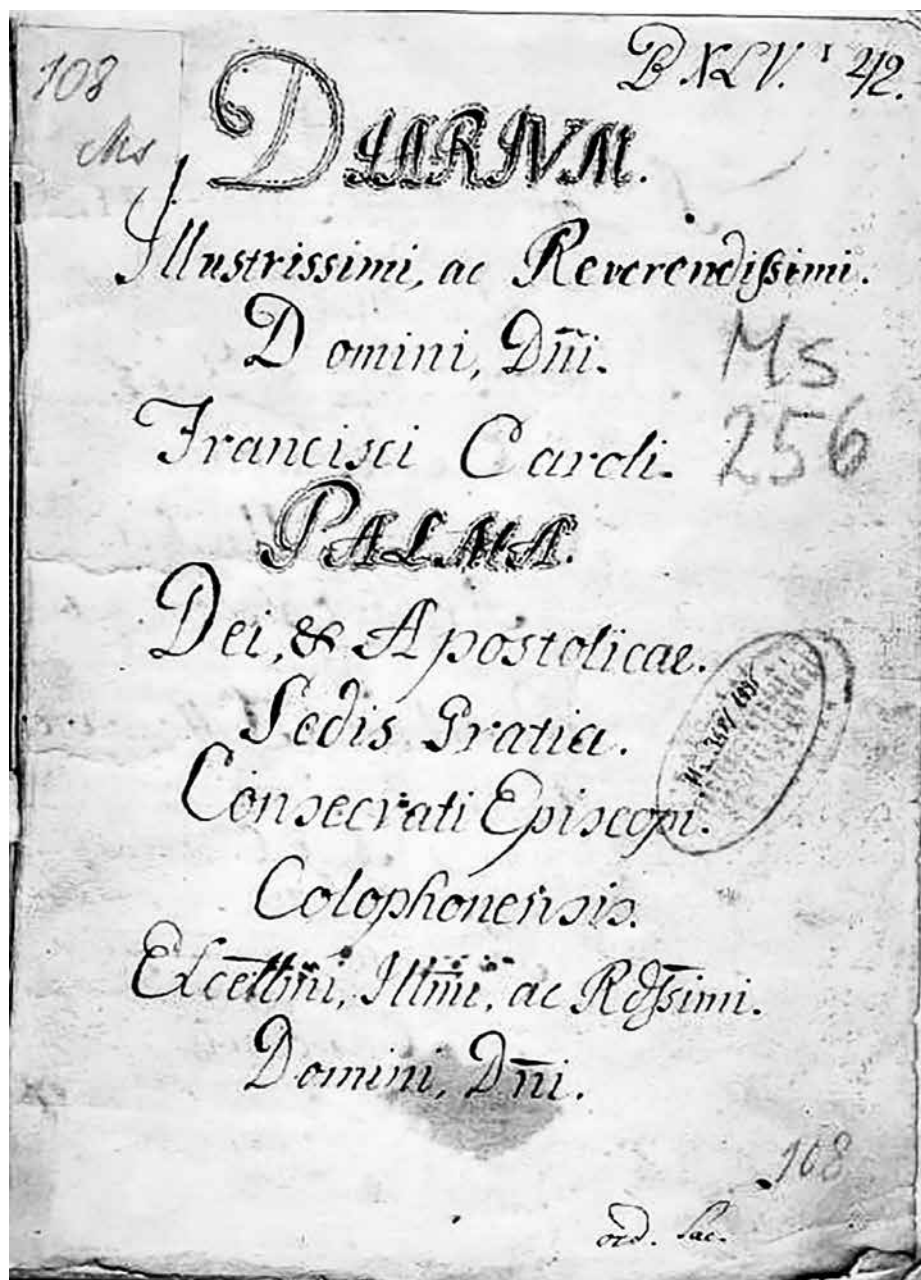 108
Ms
B XLV. 42.
DIARIVM.
Illustrissimi, ac Reverendissimi.
Domini, Dn̄i.
Ms
256
Francisci Caroli.
PALMA.
Dei, & Apostolicae.
Sedis Gratia.
Consecrati Episcopi.
Colophonensis.
Excellm̄i, Illm̄i, ac Rdssimi.
Domini, Dn̄i.
108
ord. Sac.